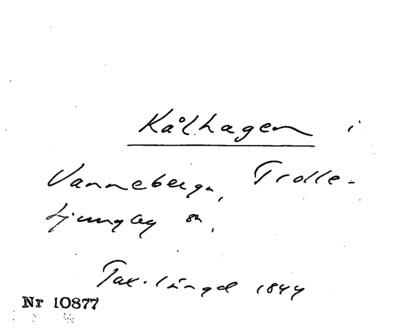 Kålhagen i
Vanneberga, Trolle-
Ljungby sn,
Tax.längd 1844
Nr 10877